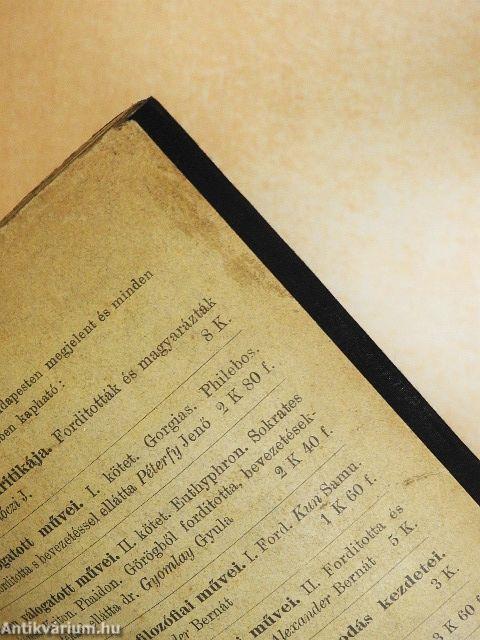 dapesten megjelent és minden
ben kapható:
ritikája. Fordították és magyarázták
óczi J. 8 K.
ogatott művei. I. kötet. Gorgias. Philebos.
rdította s bevezetéssel ellátta Péterfy Jenő 2 K 80 f.
álogatott művei. II. kötet. Euthyphron. Sokrates
Phaidon. Görögből fordította, bevezetések-
látta dr. Gyomlay Gyula 2 K 40 f.
filozófiai művei. I. Ford. Kun Samu.
1 K 60 f.
művei. II. Fordította és
Alexander Bernát 5 K.
dás kezdetei.
3 K.
3 K 60 f
Antikvárium.hu